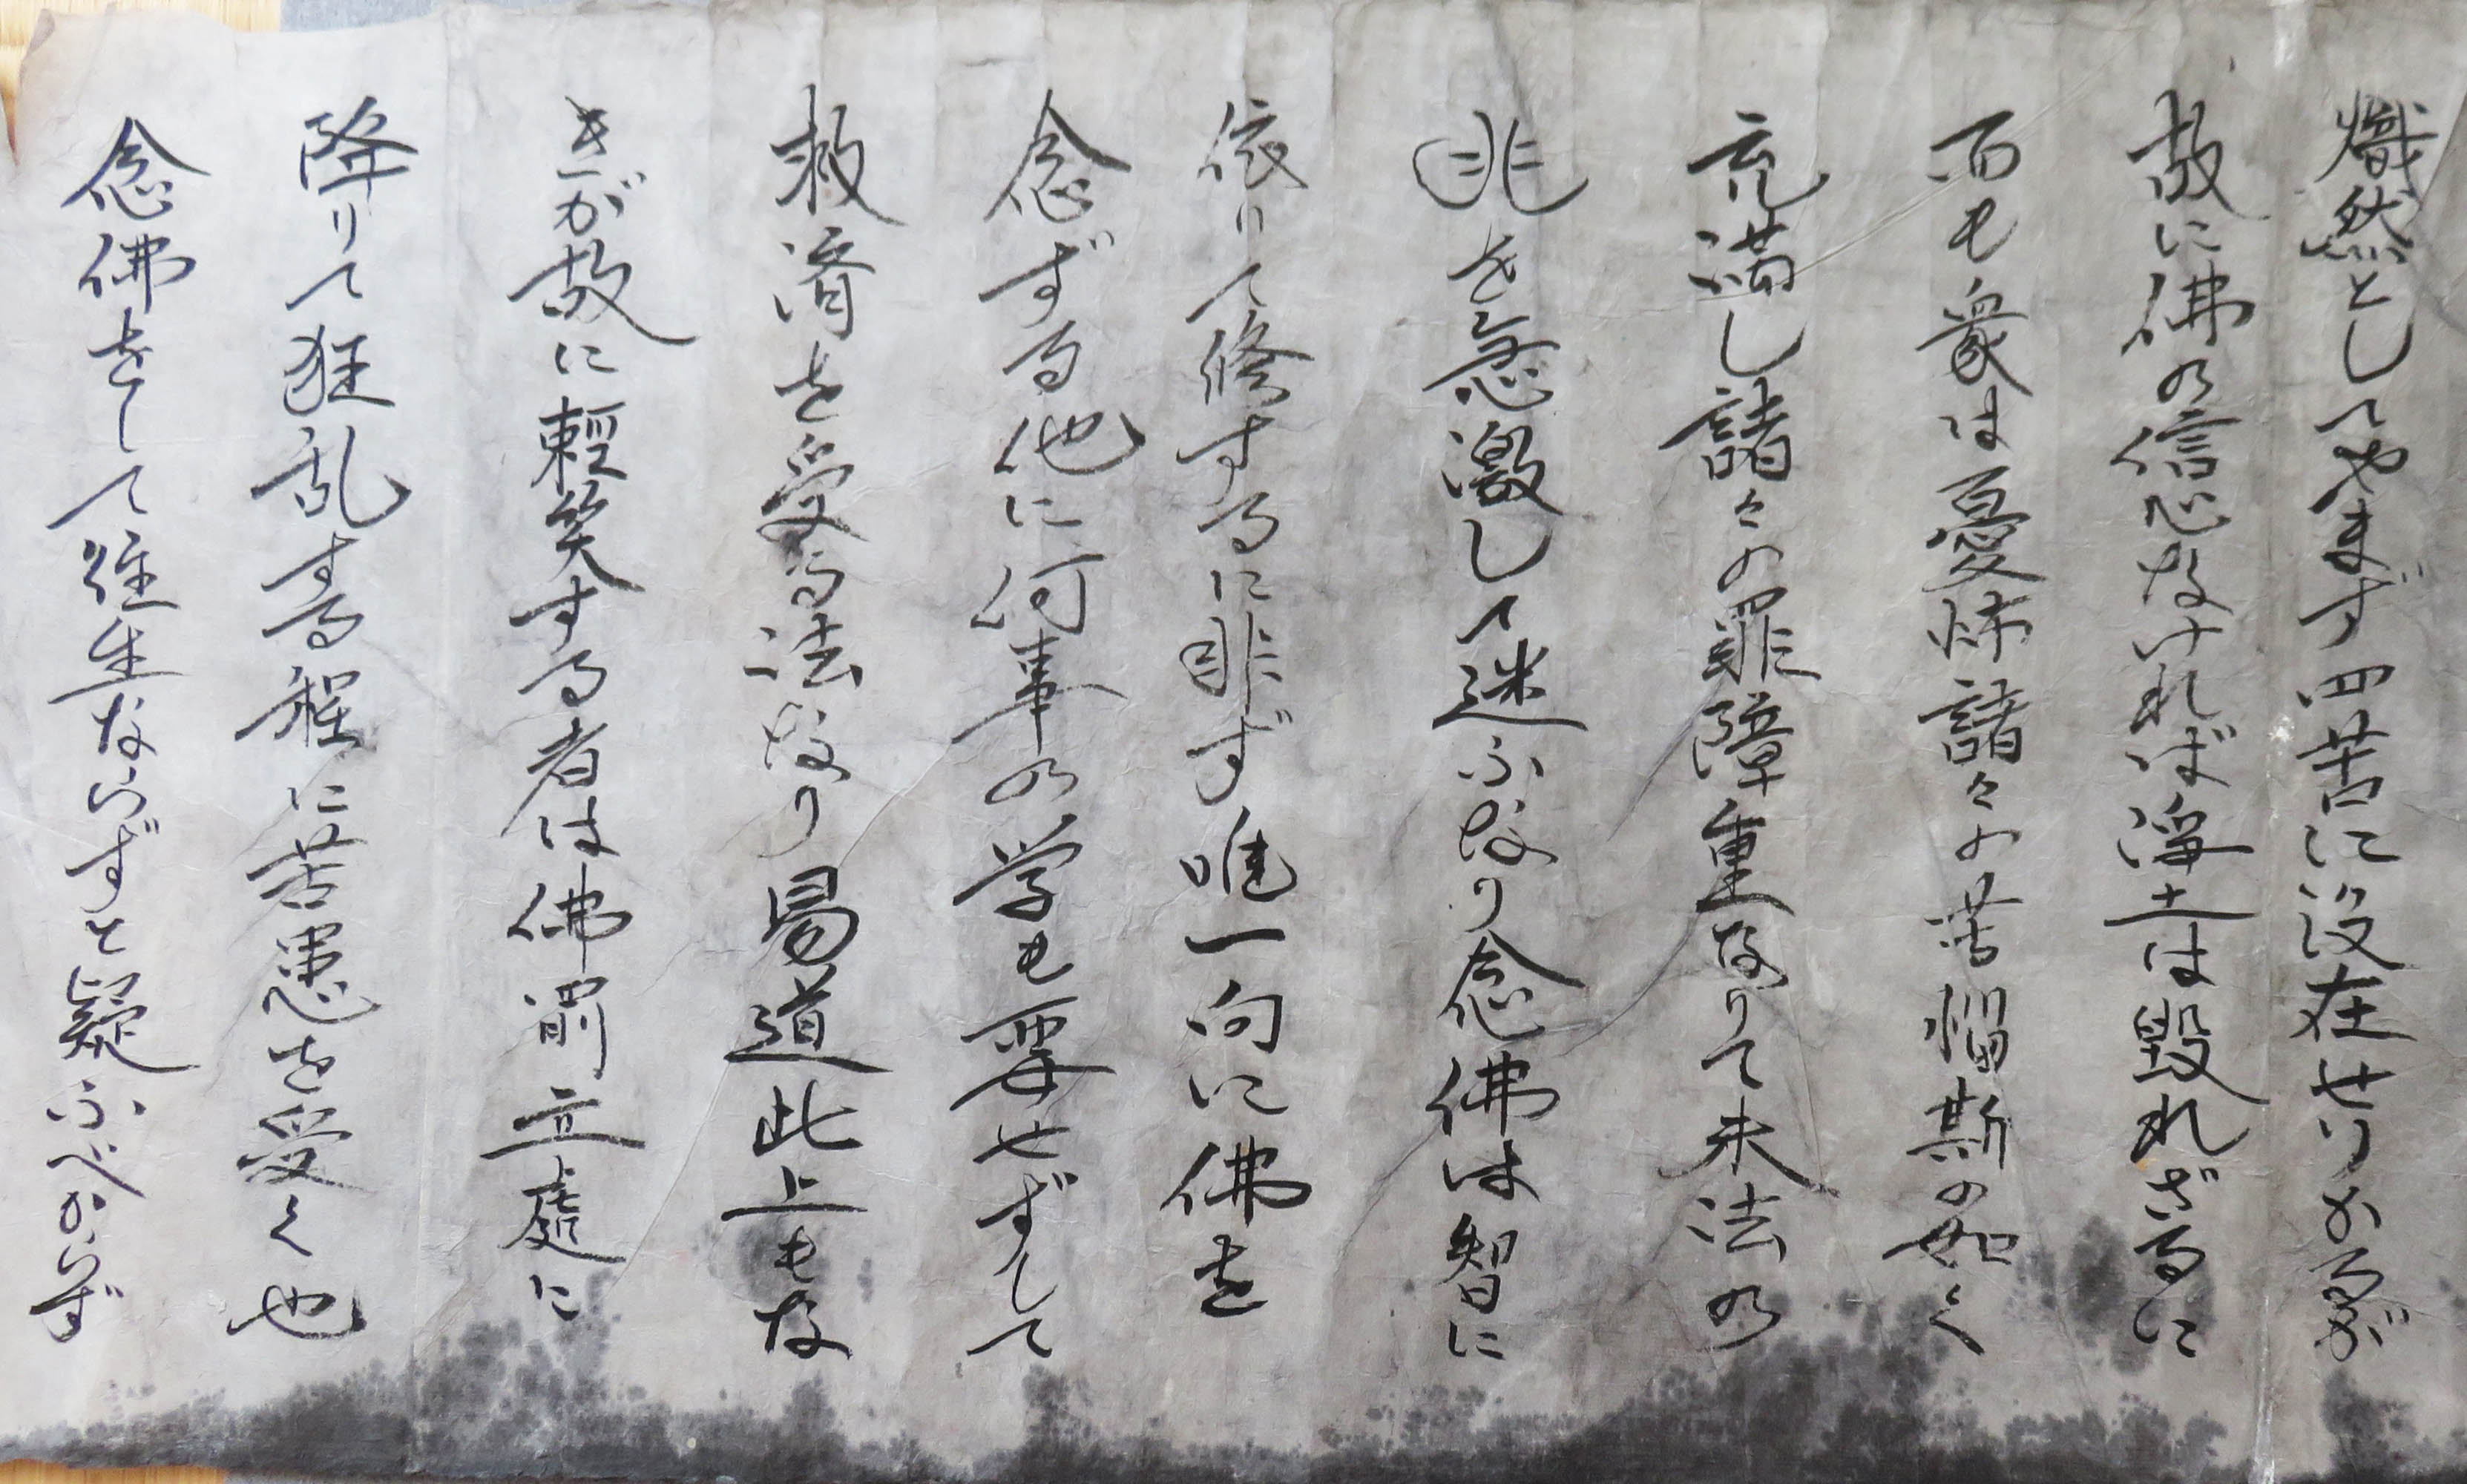 熾然としてやまず四苦に没在せりかるが
故に佛の信心なければ浄土は毀れざるに
而も衆は憂怖諸々の苦悩斯の如く
充満し諸々の罪障重なりて末法の
兆を急激して迷ふなり念佛は智に
依りて修するに非ず唯一向に佛を
念ずる他に何事の学も要せずして
救済を受る法なり易道此上もな
きが故に軽笑する者は佛罰立處に
降りて狂乱する程に苦患を受く也
念佛をして往生ならずと疑ふべからず